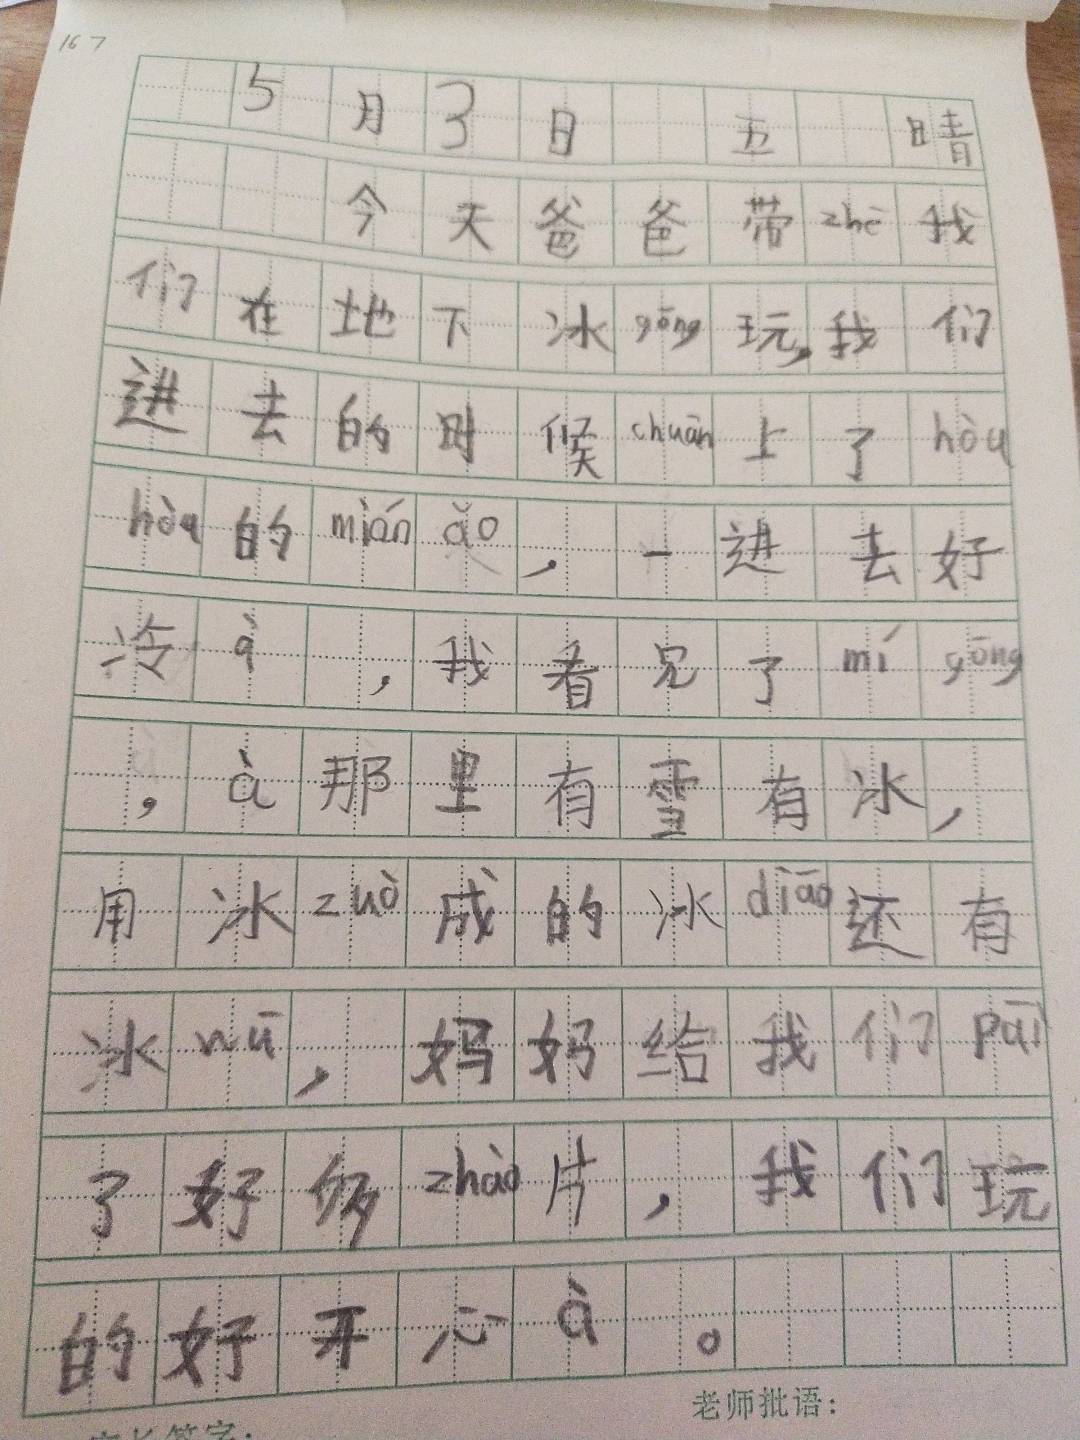 167
5月3日 五 晴
今天爸爸带zhe我
们在地下冰gōng玩,我们
进去的时候chuān上了hòu
hòu的mián ǎo,一进去好
冷à,我看见了mí gōng
,à那里有雪有冰,
用冰zuò成的冰diāo还有
冰wū,妈妈给我们pāi
了好多zhào片,我们玩
的好开心à。
老师批语:
家长签字: